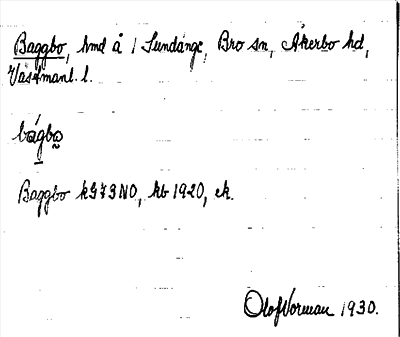 Baggbo, hmd å 1 Sundänge, Bro sn, Åkerbo hd,
Västmanl. l.
bágbo
Baggbo kG73NO, kb 1920, ek.
Olof Vorman 1930.